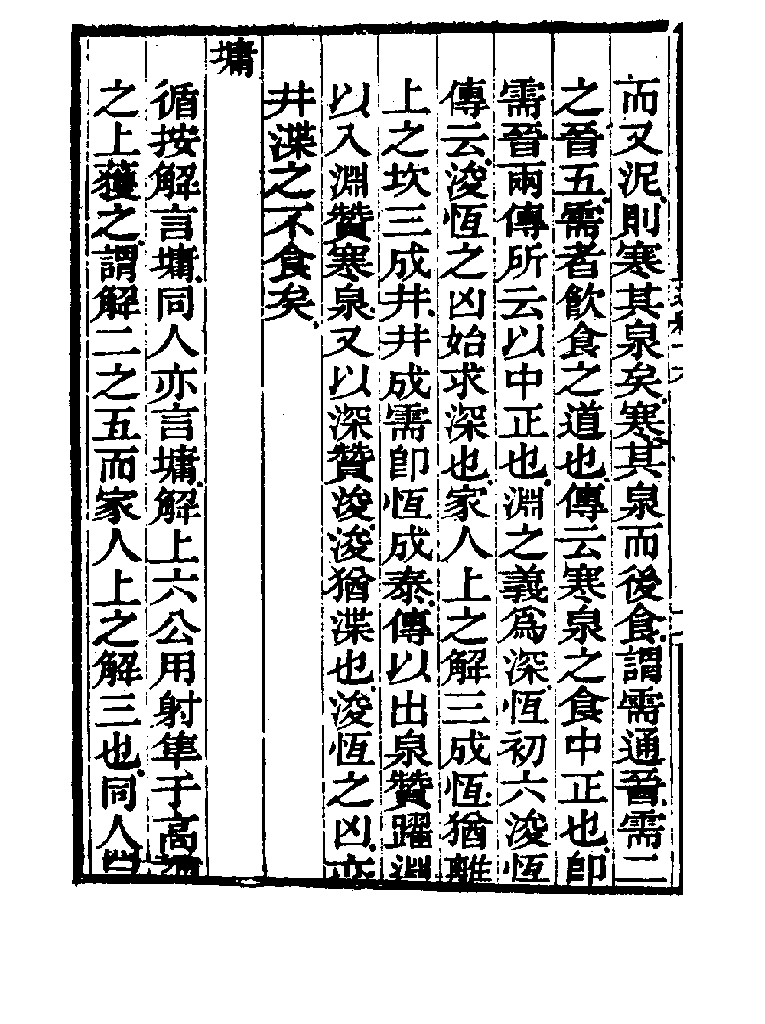 而又泥則寒其泉矣寒其泉而後食謂需通晉需二
之晉五需者飲食之道也傳云寒泉之食中正也卽
需晉兩傳所云以中正也淵之義為深恆初六浚恆
傳云浚恆之凶始求深也家人上之解三成恆猶離
上之坎三成井井成需卽恆成泰傳以出泉贊躍淵
以入淵贊寒泉又以深贊浚浚猶渫也浚恆之凶亦
井渫之不食矣
墉
循按解言墉同人亦言墉解上六公用射隼于高墉
之上獲之謂解二之五而家人上之解三也同人